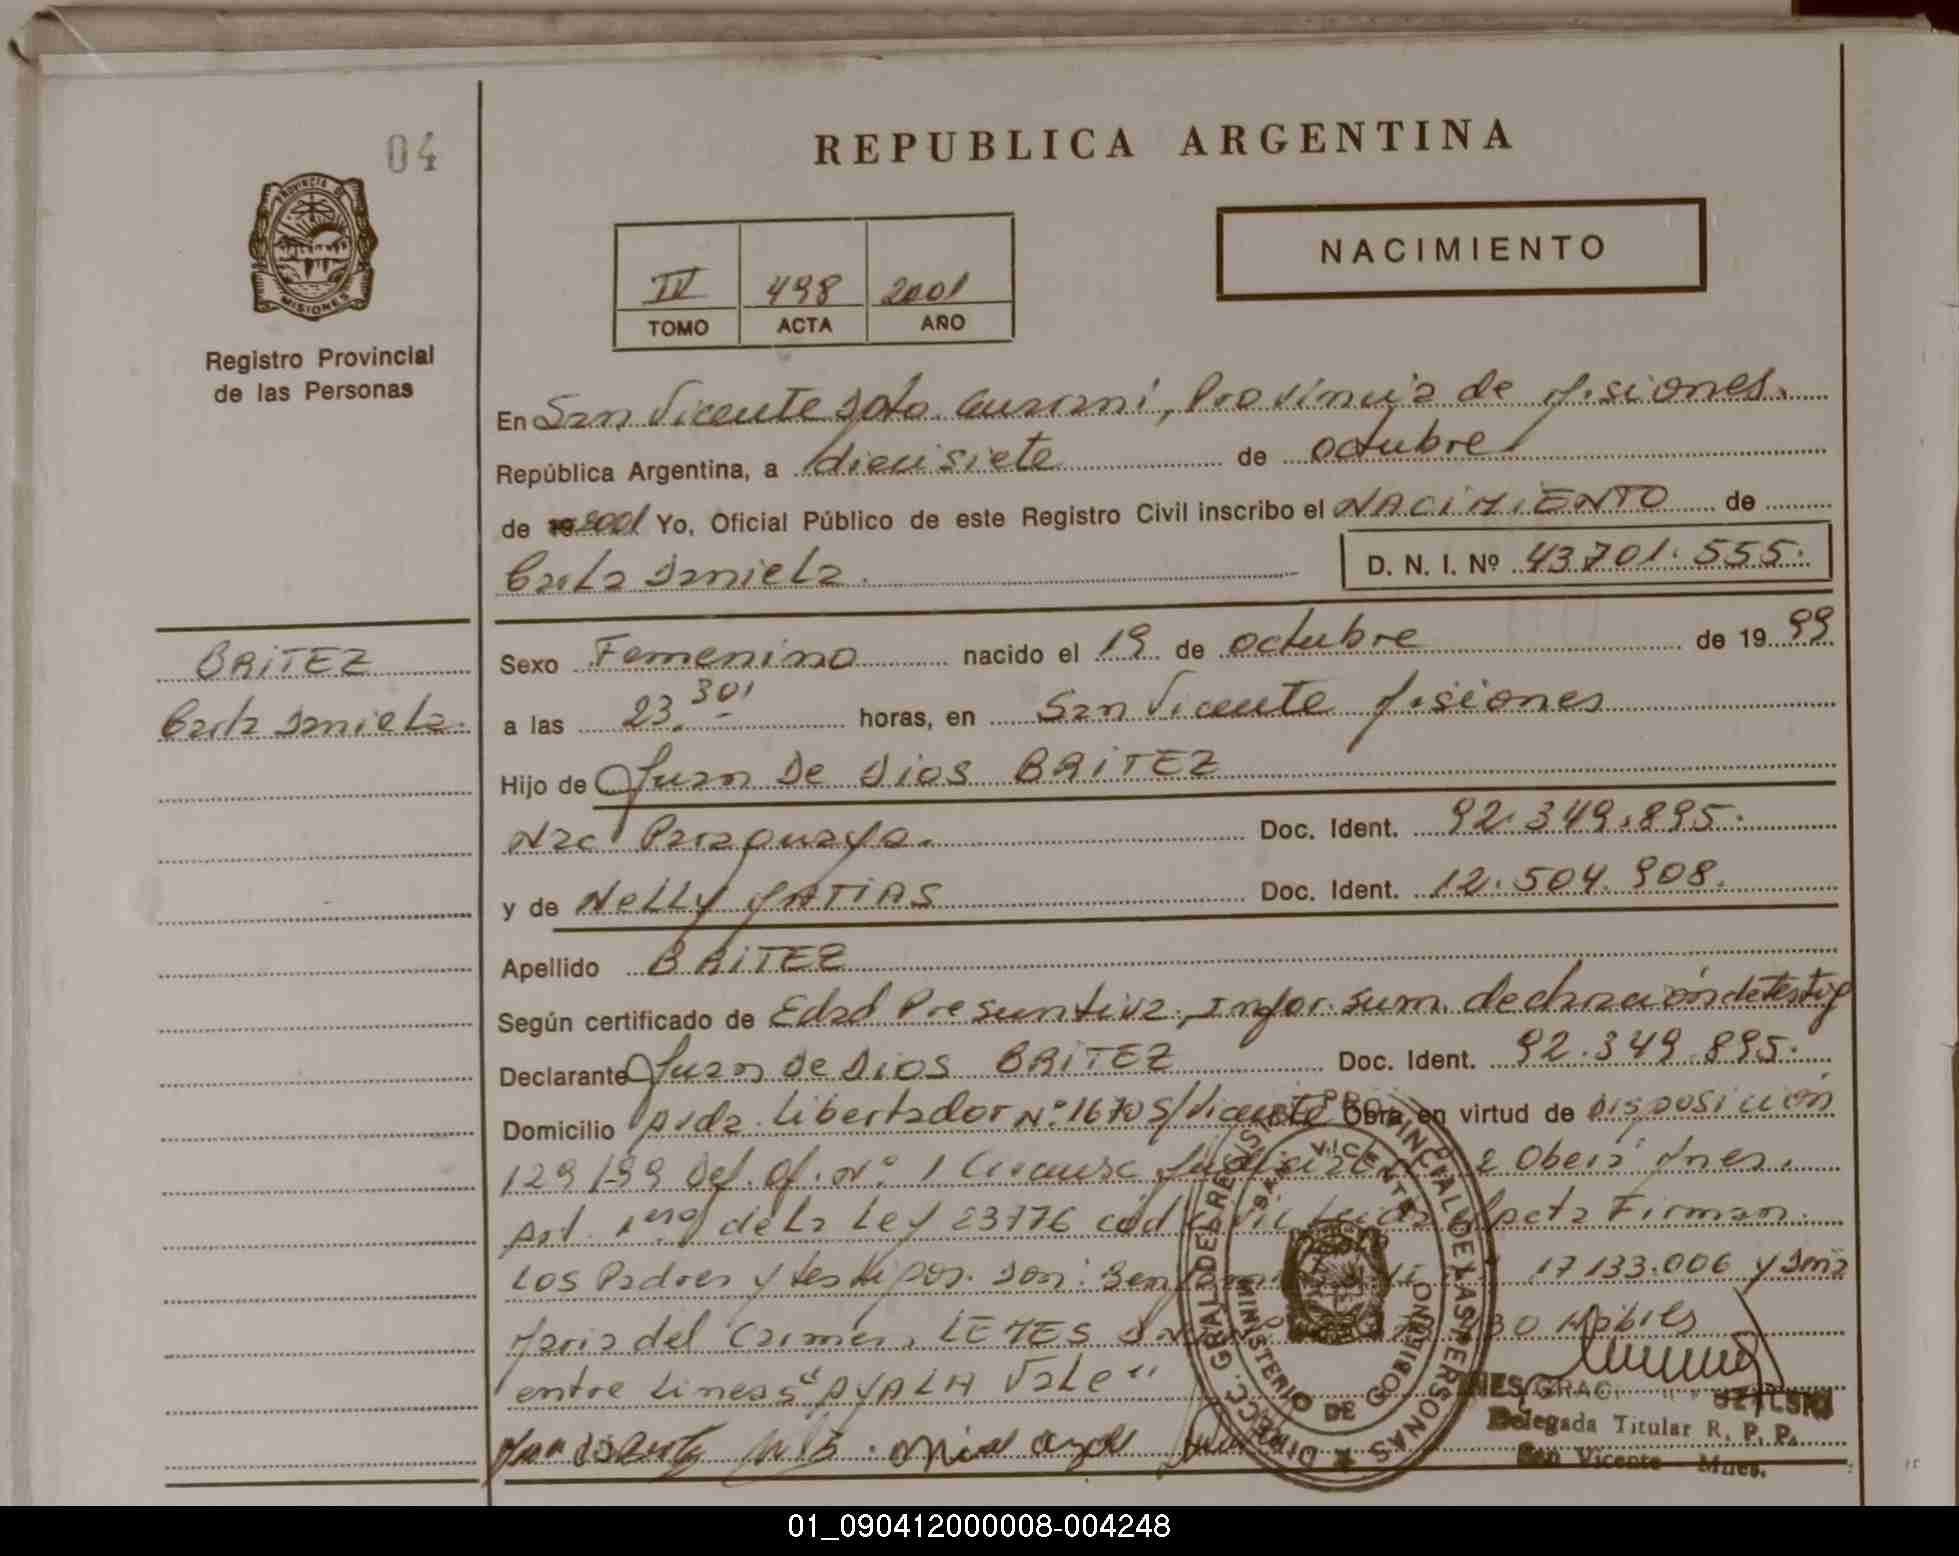 04
REPUBLICA ARGENTINA
PROVINCIA DE MISIONES
Registro Provincial
de las Personas
NACIMIENTO
IV 498 2001
TOMO ACTA AÑO
En San Vicente Dpto. Guarani, Provincia de Misiones.
República Argentina, a diecisiete de octubre
de 19 2001 Yo, Oficial Público de este Registro Civil inscribo el NACIMIENTO de
Carla Daniela. D. N. I. Nº 43.701.555.
BRITEZ
Carla Daniela.
Sexo Femenino nacido el 19 de octubre de 1999
a las 23.30' horas, en San Vicente Misiones
Hijo de Juan De Dios BRITEZ
Nac Paraguaya. Doc. Ident. 92.349.895.
y de Nelly MATIAS Doc. Ident. 12.504.908.
Apellido BRITEZ
Según certificado de Edad Presuntiva, Infor. Sum. declaración de testig
Declarante Juan De Dios BRITEZ Doc. Ident. 92.349.895.
Domicilio Avda. Libertador Nº 1670 S/Vicente Obra en virtud de Disposición
129/99 Def. Of. Nº 1 Oberá Mnes.
Art. 1ero de la Ley 23776 cód Firman
Los Padres y testigos. Son: 17133.006 y Dña
Maria del Carmen LEMES 30 Hábiles
entre lineas "AYALA Vale"
DIRECC. GRAL. DEL REG. PROVINCIAL DE LAS PERSONAS
SAN VICENTE
MINISTERIO DE GOBIERNO
INES GRAC
Delegada Titular R. P. P.
San Vicente - Mnes.
01_090412000008-004248